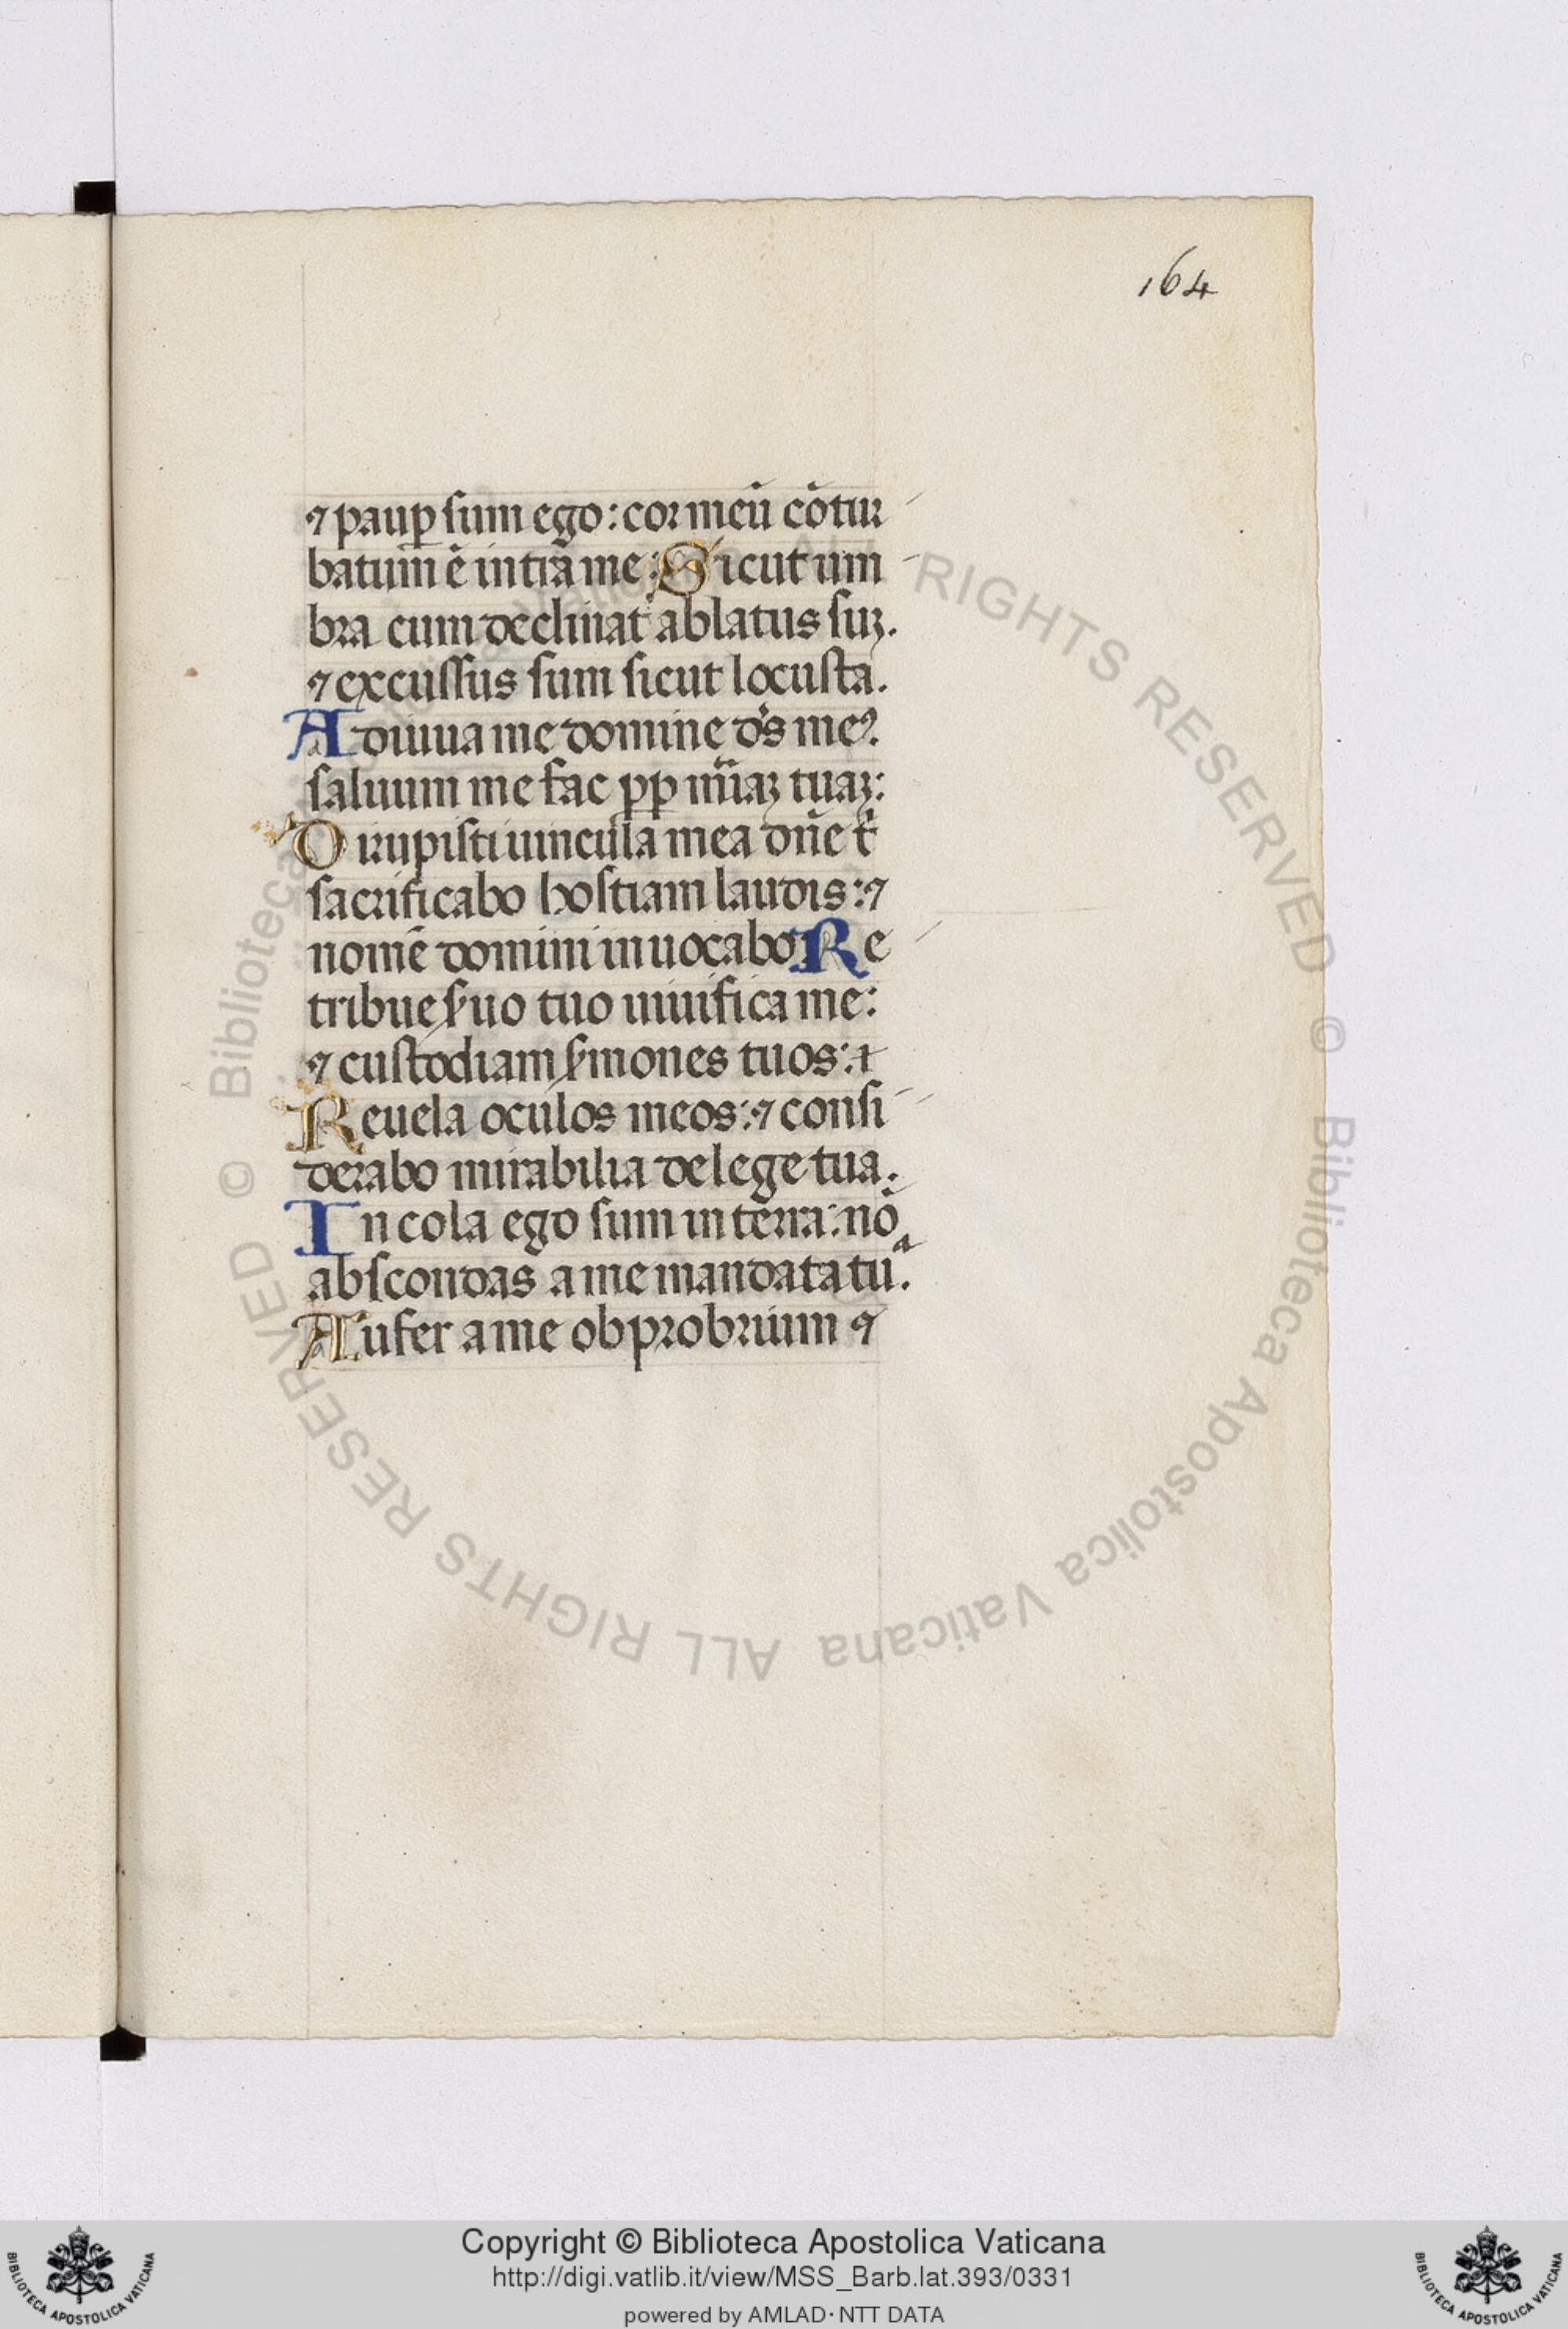 164
⁊ paup̱ sum ego: cor meū cōtur
batum ē intra me: Sicut um
bra cum declinat ablatus suꝫ.
⁊ excussus sum sicut locusta.
Adiuua me domine d̄s me᷒
saluum me fac pp̱ mīaꝫ tuaꝫ:
Dirupisti uincula mea dn̄e t̄
sacrificabo hostiam laudis: ⁊
nomē domini inuocabo: Re
tribue s̄uo tuo uiuifica me:
⁊ custodiam s̄mones tuos:
Reuela oculos meos: ⁊ consi
derabo mirabilia de lege tua.
Incola ego sum in terra: nō
abscondas a me mandata tuᵃ.
Aufer a me obprobrium ⁊
© Biblioteca Apostolica Vaticana ALL RIGHTS RESERVED © Biblioteca Apostolica Vaticana ALL RIGHTS RESERVED
Copyright © Biblioteca Apostolica Vaticana
http://digi.vatlib.it/view/MSS_Barb.lat.393/0331
powered by AMLAD·NTT DATA
BIBLIOTECA APOSTOLICA VATICANA
BIBLIOTECA APOSTOLICA VATICANA